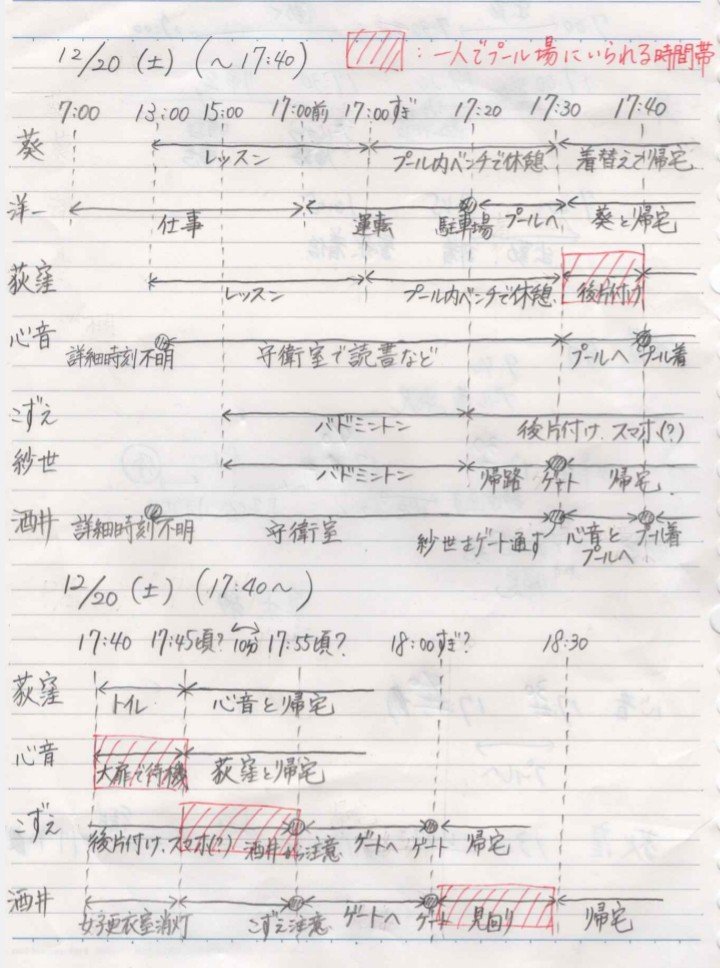 12/20 (土) (～17:40) :一人でプール場にいられる時間帯
7:00 13:00 15:00 17:00前 17:00すぎ 17:20 17:30 17:40
葵 レッスン プール内ベンチで休憩 着替えて帰宅
洋一 仕事 運転 駐車場 プールへ 葵と帰宅
荻窪 レッスン プール内ベンチで休憩 後片付け
心音 詳細時刻不明 守衛室で読書など プールへ プール着
こずえ バドミントン 後片付け、スマホ(?)
紗世 バドミントン 帰路 ゲート 帰宅
酒井 詳細時刻不明 守衛室 紗世をゲート通す 心音とプールへ プール着
12/20 (土) (17:40～)
17:40 17:45頃? 10分 17:55頃? 18:00すぎ? 18:30
荻窪 トイレ 心音と帰宅
心音 大扉で待機 荻窪と帰宅
こずえ 後片付け、スマホ(?) 酒井から注意 ゲートへ ゲート 帰宅
酒井 女子更衣室消灯 こずえ注意 ゲートへ ゲート 見回り 帰宅